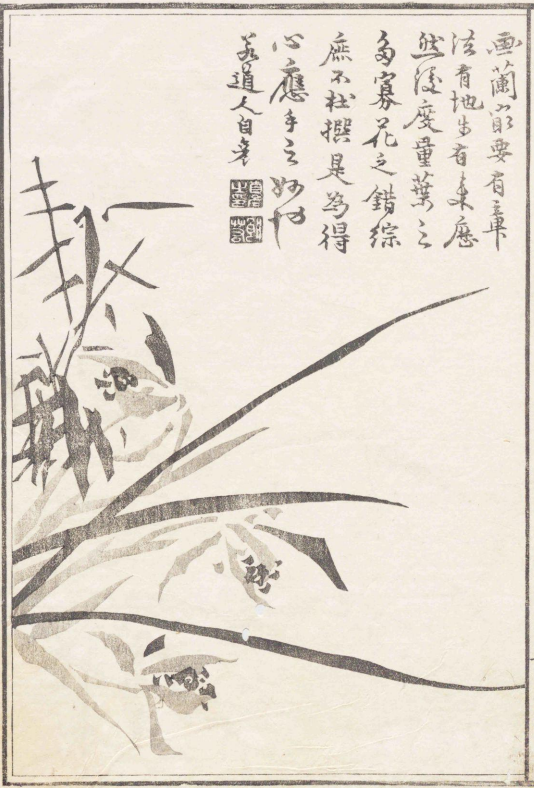 画蘭最要有筆
法有地步有來歷
然後度量葉之
多寡花之錯綜
庶不杜撰是為得
心應手之妙也
道人自